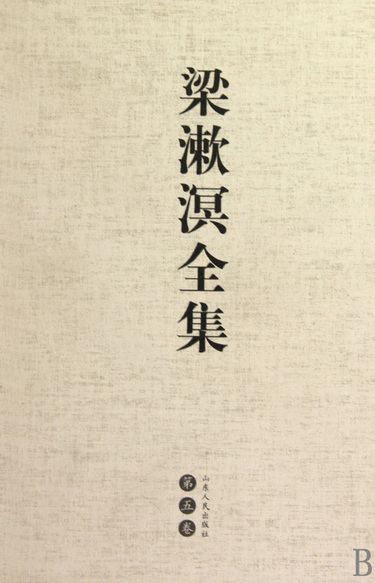 梁漱溟全集
第五卷
山东人民出版社
B